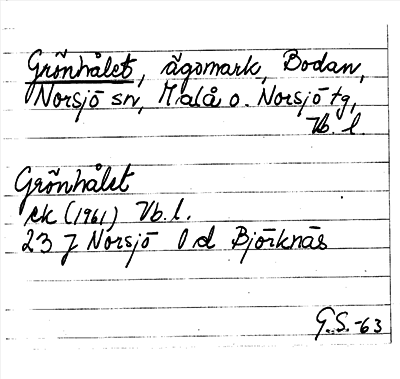 Grönhålet, ägomark, Bodan,
Norsjö sn, Malå o. Norsjö tg,
Vb. l.
Grönhålet
ek (1961) Vb. l.
23 J Norsjö 0 d Björknäs
G.S. -63